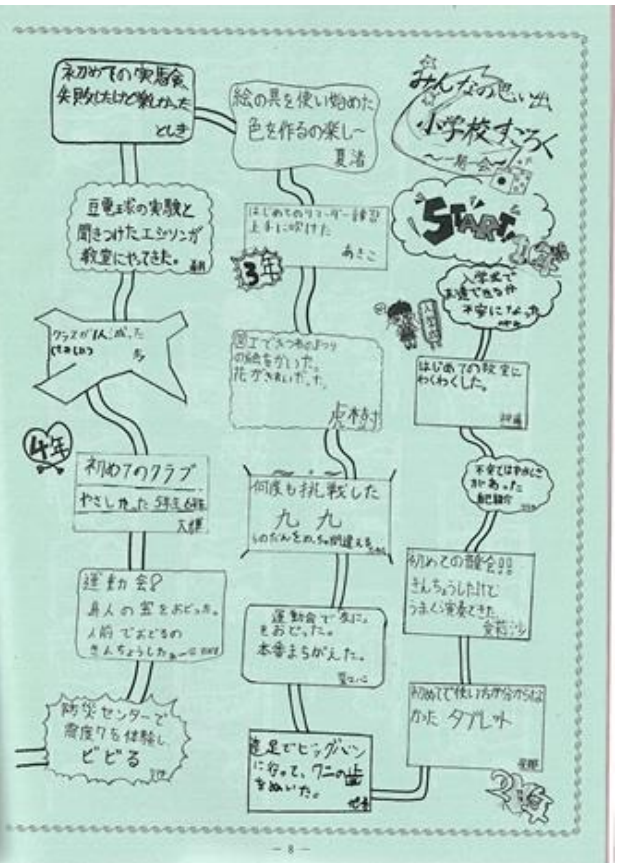 みんなの思い出
小学校すごろく
～一期一会～
START
1年
入学式で
友達できるか
不安になった
はじめての教室に
わくわくした。
があった
自己紹介
初めての音楽会!!
きんちょうしたけど
うまく演奏できた
初めてで使い方が分からな
かった タブレット
2年
遠足でビッグバン
に行って、ワニの歯
をぬいた。
運動会で
をおどった。
本番まちがえた。
何度も挑戦した
九九
図工で
の絵をかいた。
花がきれいだった。
虎樹
3年
はじめてのリコーダー練習
上手に吹けた
あきこ
絵の具を使い始めた
色を作るの楽し～
夏渚
初めての実験会、
失敗したけど楽しかった
としき
豆電球の実験と
聞きつけたエジソンが
教室にやってきた。
クラスが1人減った
4年
初めてのクラブ
やさしかった5年生6年生
大輝
運動会!
をおどった。
人前でおどるの
きんちょうしたぁー
防災センターで
震度7を体験し、
ビビる
－8－